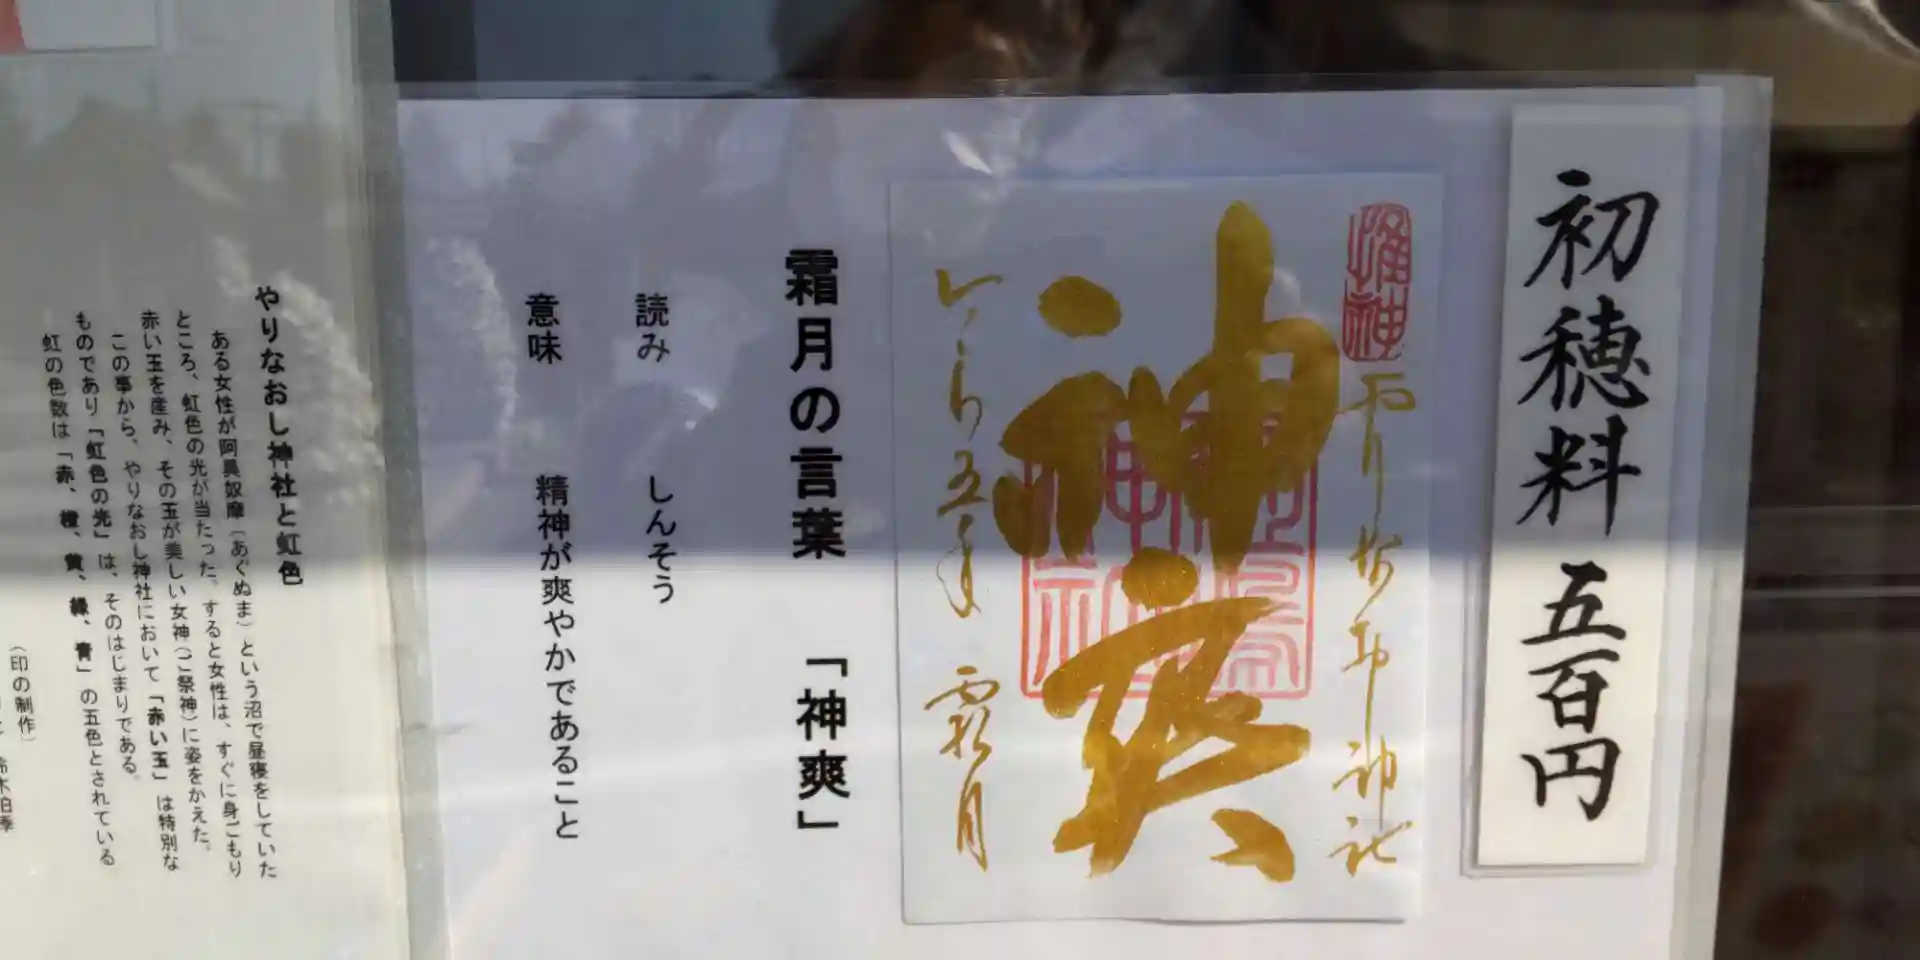 初穂料 五百円
神爽
霜月
霜月の言葉 「神爽」
読み しんそう
意味 精神が爽やかであること
やりなおし神社と虹色
ある女性が阿具奴摩（あぐぬま）という沼で昼寝をしていた
ところ、虹色の光が当たった。すると女性は、すぐに身ごもり
赤い玉を産み、その玉が美しい女神（ご祭神）に姿をかえた。
この事から、やりなおし神社において「赤い玉」は特別な
ものであり「虹色の光」は、そのはじまりである。
虹の色数は「赤、橙、黄、緑、青」の五色とされている
（印の制作）